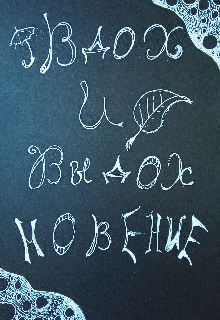 ВДОХ
И
ВЫДОХ
НОВЕНИЕ